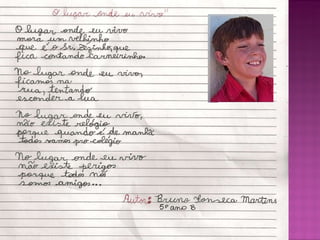 O lugar onde eu vivo"
O lugar onde eu vivo
mora um velhinho
que é o Sr. Zizinho, que
fica contando carneirinhos.
No lugar onde eu vivo,
ficamos na
rua, tentando
esconder a lua.
No lugar onde eu vivo,
não existe relógio
porque quando é de manhã
todos vamos pro colégio
No lugar onde eu vivo
não existe perigos
porque todos nós
somos amigos...
Autor: Bruno Fonseca Martins
5º ano B